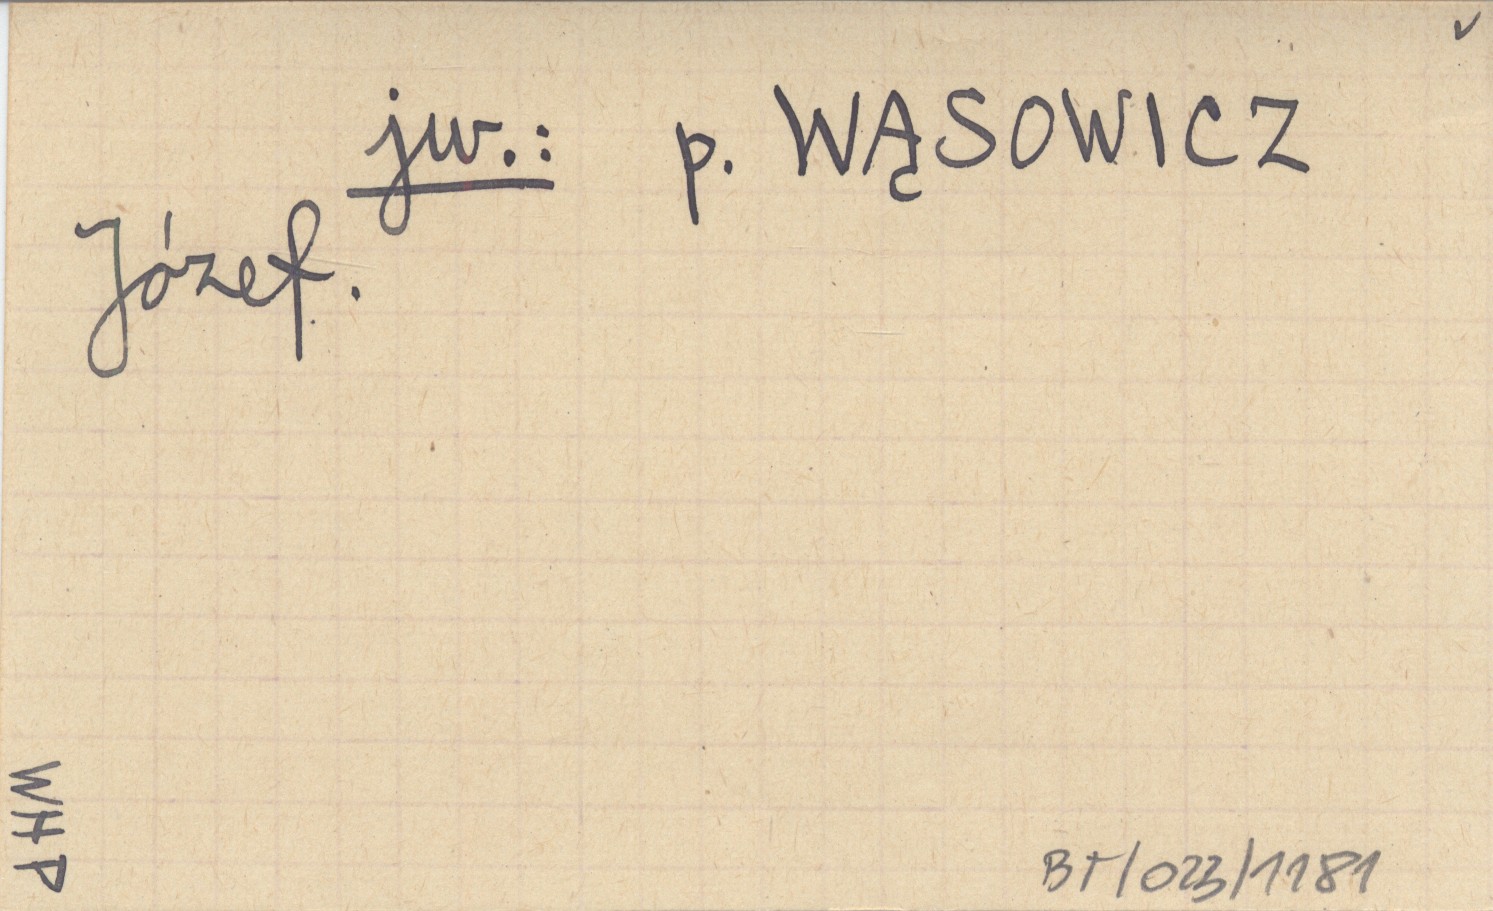 jw.: p. WĄSOWICZ
Józef.
WHP
BT/023/1181